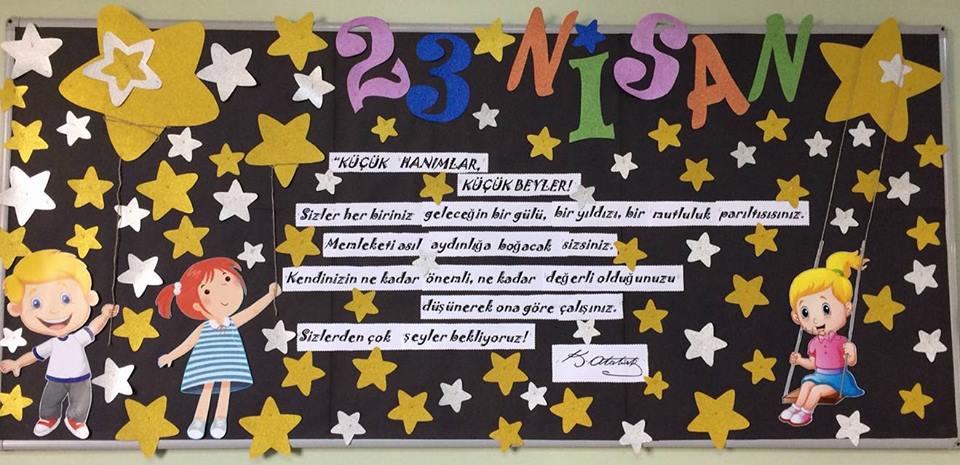 23 NiSAN
"KÜÇÜK HANIMLAR,
KÜÇÜK BEYLER!
Sizler her biriniz geleceğin bir gülü, bir yıldızı, bir mutluluk parıltısısınız.
Memleketi asıl aydınlığa boğacak sizsiniz.
Kendinizin ne kadar önemli, ne kadar değerli olduğunuzu
düşünerek ona göre çalışınız.
Sizlerden çok şeyler bekliyoruz!
K. Atatürk